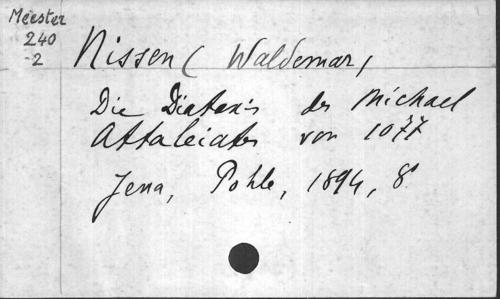 Meester
240
-2
Nissen (Waldemar)
Die Diataxis des Michael
Attaleiates von 1077
Jena, Pohle, 1894, 8°